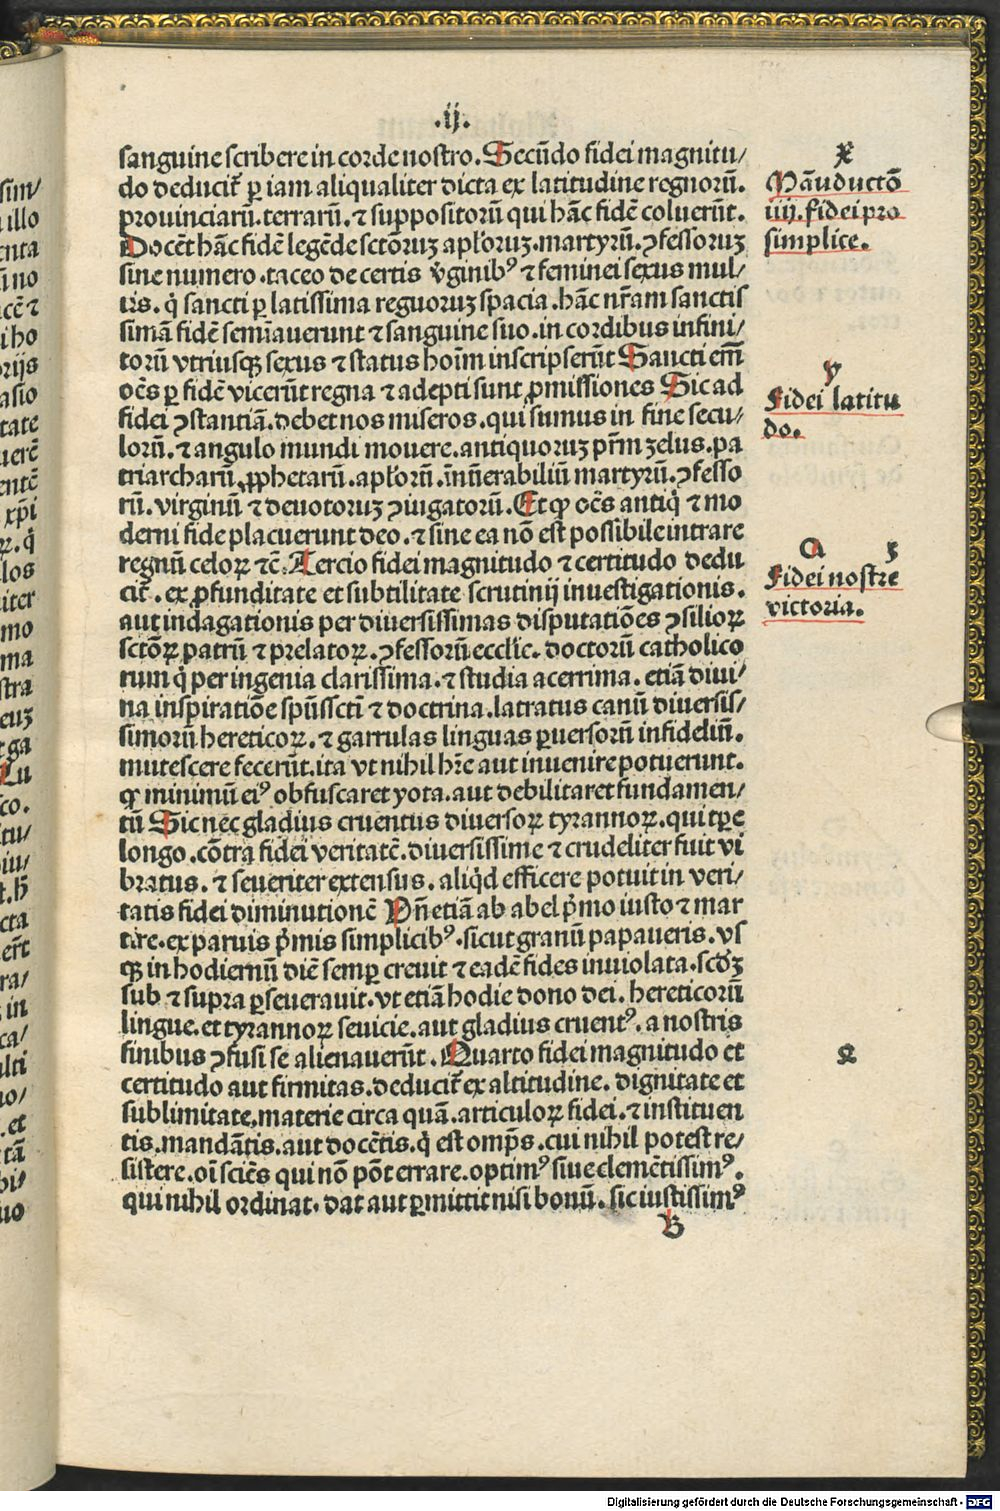 .ij.
sanguine scribere in corde nostro. Secūdo fidei magnitu/
do deducit᷑ ꝑ iam aliqualiter dicta ex latitudine regnorū.
prouinciarū. terrarū. ⁊ suppositorū qui hāc fidē coluerūt.
Docēt hāc fidē legēde sctōruꝫ apl̓oruꝫ. martyrū. ꝯfessoruꝫ
sine numero. taceo de certis v̓ginibꝰ ⁊ feminei sexus mul/
tis. q̇ sancti ꝑ latissima regnoruꝫ spacia. hāc nr̄am sanctis
simā fidē semīauerunt ⁊ sanguine suo. in cordibus infini/
torū vtriusqꝫ sexus ⁊ status hoīm inscripserūt Sancti em̄
oēs ꝑ fidē vicerūt regna ⁊ adepti sunt ꝓmissiones Sic ad
fidei ꝯstantiā. debet nos miseros. qui sumus in fine secu/
lorū. ⁊ angulo mundi mouere. antiquoruꝫ pr̄m ꝫelus. pa
triarcharū. ꝓphetarū. apl̓orū. īnūerabiliū martyrū. ꝯfesso
rū. virginū ⁊ deuotoruꝫ ꝯiugatorū. Et ꝙ oēs antiq̇ ⁊ mo
derni fide placuerunt deo. ⁊ sine ea nō est possibile intrare
regnū celoꝝ ⁊c̄. Tercio fidei magnitudo ⁊ certitudo dedu
cit᷑. ex ꝓfunditate et subtilitate scrutinij inuestigationis.
aut indagationis per diuersissimas disputatiōes ꝯsilioꝝ
sctōꝝ patrū ⁊ prelatoꝝ. ꝯfessorū eccl̓ie. doctorū catholico
rum q̇ per ingenia clarissima. ⁊ studia acerrima. etiā diui/
na inspiratiōe spūssctī ⁊ doctrina. latratus canū diuersis/
simorū hereticoꝝ. ⁊ garrulas linguas ꝑuersorū infideliū.
mutescere fecerūt. ita vt nihil hr̄e aut inuenire potuerunt.
ꝙ minimū eiꝰ obfuscaret yota. aut debilitaret fundamen/
tū Sic nec gladius cruentus diuersoꝝ tyrannoꝝ. qui tꝑe
longo. cōtra fidei veritatē. diuersissime ⁊ crudeliter fuit vi
bratus. ⁊ seueriter extensus. aliq̇d efficere potuit in veri/
tatis fidei diminutionē Vn̄ etiā ab abel pͥmo iusto ⁊ mar
tire. ex paruis pͥmis simplicibꝰ. sicut granū papaueris. vs
qꝫ in hodiernū diē semꝑ creuit ⁊ eadē fides inuiolata. scd̓ꝫ
sub ⁊ supra ꝑseuerauit. vt etiā hodie dono dei. hereticorū
lingue. et tyrannoꝝ seuicie. aut gladius cruentꝰ. a nostris
finibus ꝯfusi se alienauerūt. Quarto fidei magnitudo et
certitudo aut firmitas. deducit᷑ ex altitudine. dignitate et
sublimitate. materie circa quā. articuloꝝ fidei. ⁊ instituen
tis. mandātis. aut docētis. q̇ est omp̄s. cui nihil potest re/
sistere. oī sciēs qui nō pōt errare. optimꝰ siue clemētissimꝰ.
qui nihil ordinat. dat aut ꝑmittit nisi bonū. sic iustissimꝰ
B
x
Māuductō
iiij. fidei pro
simplice.
y
Fidei latitu
do.
a ꝫ
Fidei nostre
victoria.